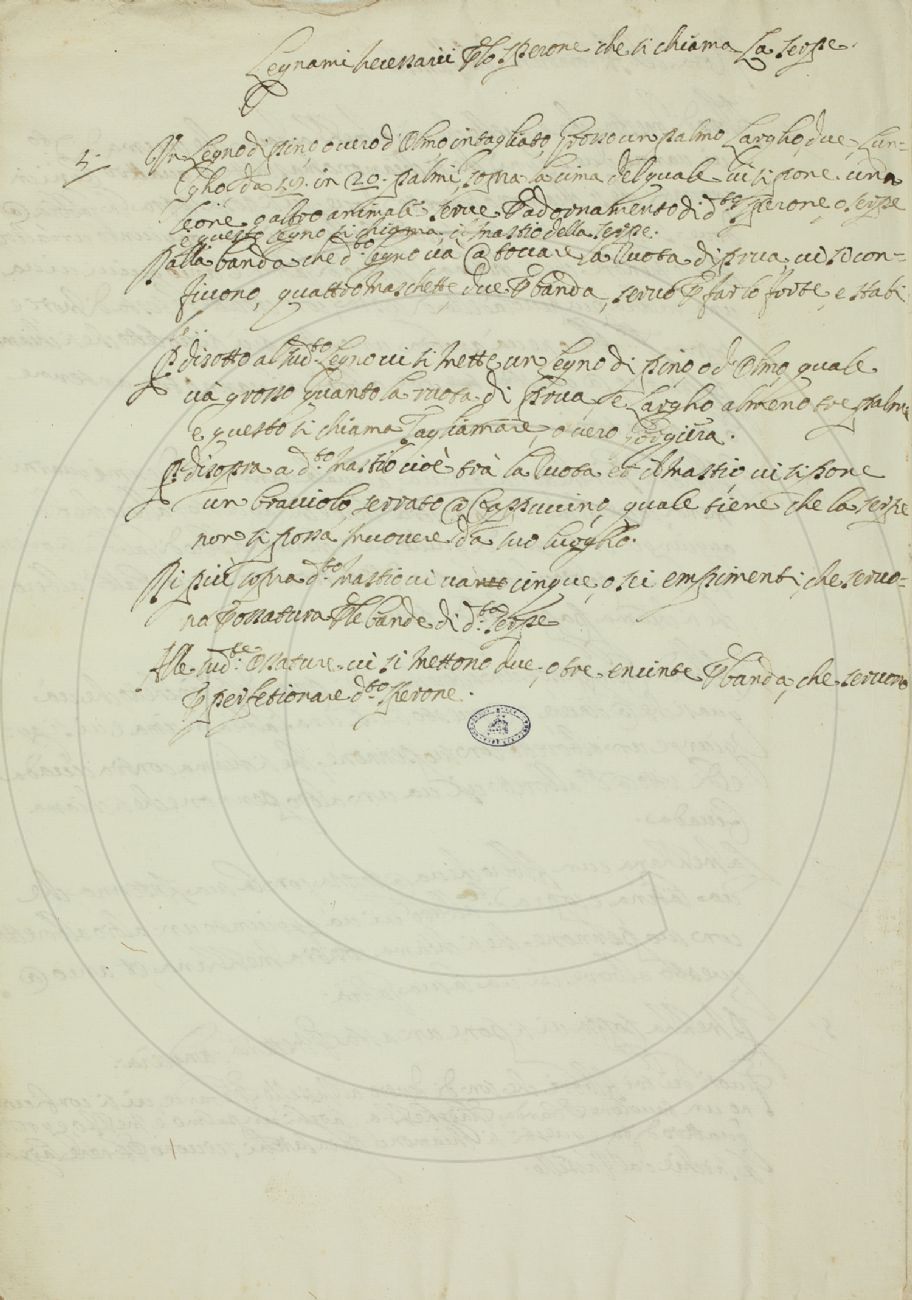 Legnami necessarii p lo sperone che si chiama La serpe.
5. Un Legno di pino, overo d'Olmo intagliato, Grosso un palmo Largho, due, Lun-
gho, da 19. in 20. palmi, sopra la cima del quale vi si pone un
leone, o altro animale serve p adornamento di d.to sperone, o serpe
e questo legno si chiama il mastio della serpe.
Alla banda che d.to legno va @ toccare la Ruota di prua, vi si con-
ficcono, quattro maschette, due p banda, servo p farlo forte, e stabi
le.
Di sotto al sud.to Legno vi si mette un legno di pino, o d'Olmo, quale
và grosso quanto la ruota di Prua, e Largho almeno tre palmi
e questo si chiama Tagliamare, o vero
Di sopra a d.to mastio cioè trà la Ruota et il mastio, vi si pone
un bracciolo, serrato @ Cappuccino, quale tiene che la serpe
non si possa muovere da suo luogho.
Di più sopra d.to mastio vi va cinque, o sei empimenti, che servo-
no p ossatura p le bande di d.ta serpe
Alle sud.te Ossature vi si mettono due, o tre, encinte p banda, che servono
p perfetionare d.to sperone.